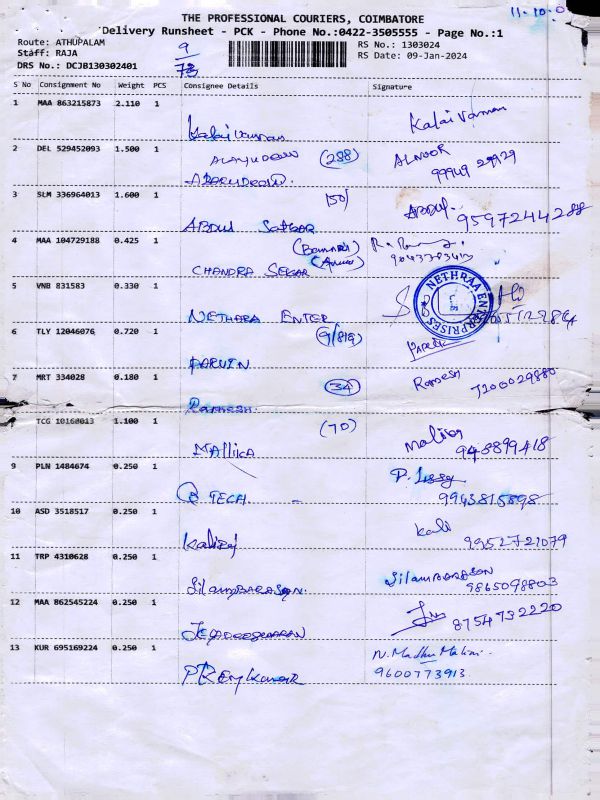 11.10.0
THE PROFESSIONAL COURIERS, COIMBATORE
Delivery Runsheet - PCK - Phone No.:0422-3505555 - Page No.:1
Route: ATHUPALAM
Staff: RAJA
DRS No.: DCJB130302401
9
73
RS No.: 1303024
RS Date: 09-Jan-2024
S No Consignment No Weight PCS Consignee Details Signature
1 MAA 863215873 2.110 1
Kalaivannan Kalaivannan
2 DEL 529452093 1.500 1
(288) ALNOOR
99949 29929
3 SLM 336964013 1.600 1
150/
ABDUL SATHAR ABDUL. 9597244288
4 MAA 104729188 0.425 1
CHANDRA SEGAR
5 VNB 831583 0.330 1
NETHRA ENTER
NETHRAA ENTERPRISES
6 TLY 12046076 0.720 1
(9/819)
PARVIN
7 MRT 334028 0.180 1
(34)
Ramesh. Ramesh 7200029880
TCG 10160013 1.100 1
(70)
Mallika 948899418
9 PLN 1484674 0.250 1
TECH. 9943815898
10 ASD 3518517 0.250 1
Kaliraj Kali 9952721079
11 TRP 4310628 0.250 1
SilamBARASAN. SilamBARASAN
9865098803
12 MAA 862545224 0.250 1
JEGADEESHWARAN 8754732220
13 KUR 695169224 0.250 1
PREMKUMAR N. Madhu Malini
9600773913